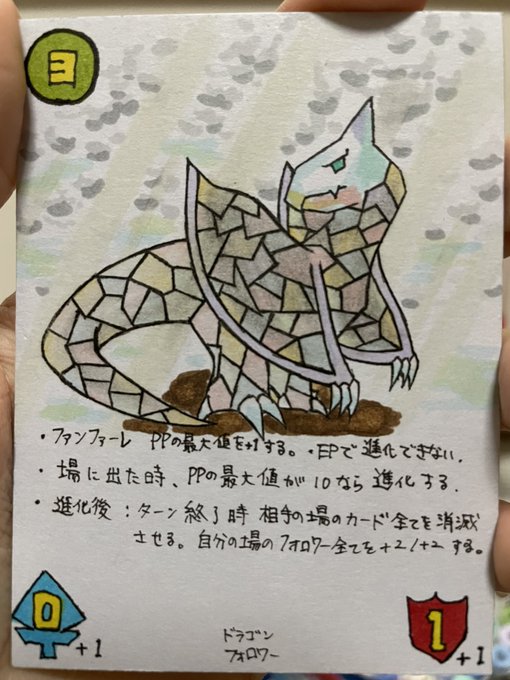 ヨ
・ファンファーレ PPの最大値を+1する。・EPで進化できない.
・場に出た時、PPの最大値が10なら進化する.
・進化後:ターン終了時 相手の場のカード全てを消滅
させる。自分の場のフォロワー全てを+2/+2する。
0
+1
ドラゴン
フォロワー
1
+1